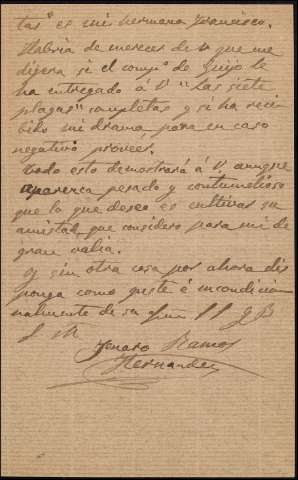 tas" es mi hermano Francisco.
Habria de merecer de V. que me
dijera si el comp.º de Guijo le
ha entregado á V. "Las siete
plagas" completas y si ha reci-
bido mi drama para en caso
negativo proveer.
Todo esto demostrará á V. aunque
aparezca pesado y contumelioso
que lo que deseo es cultivar su
amistad que considero para mi de
gran valia.
Y sin otra cosa por ahora dis
ponga como guste é incondicio
nalmente de su
Genaro Ramos
Hernandez